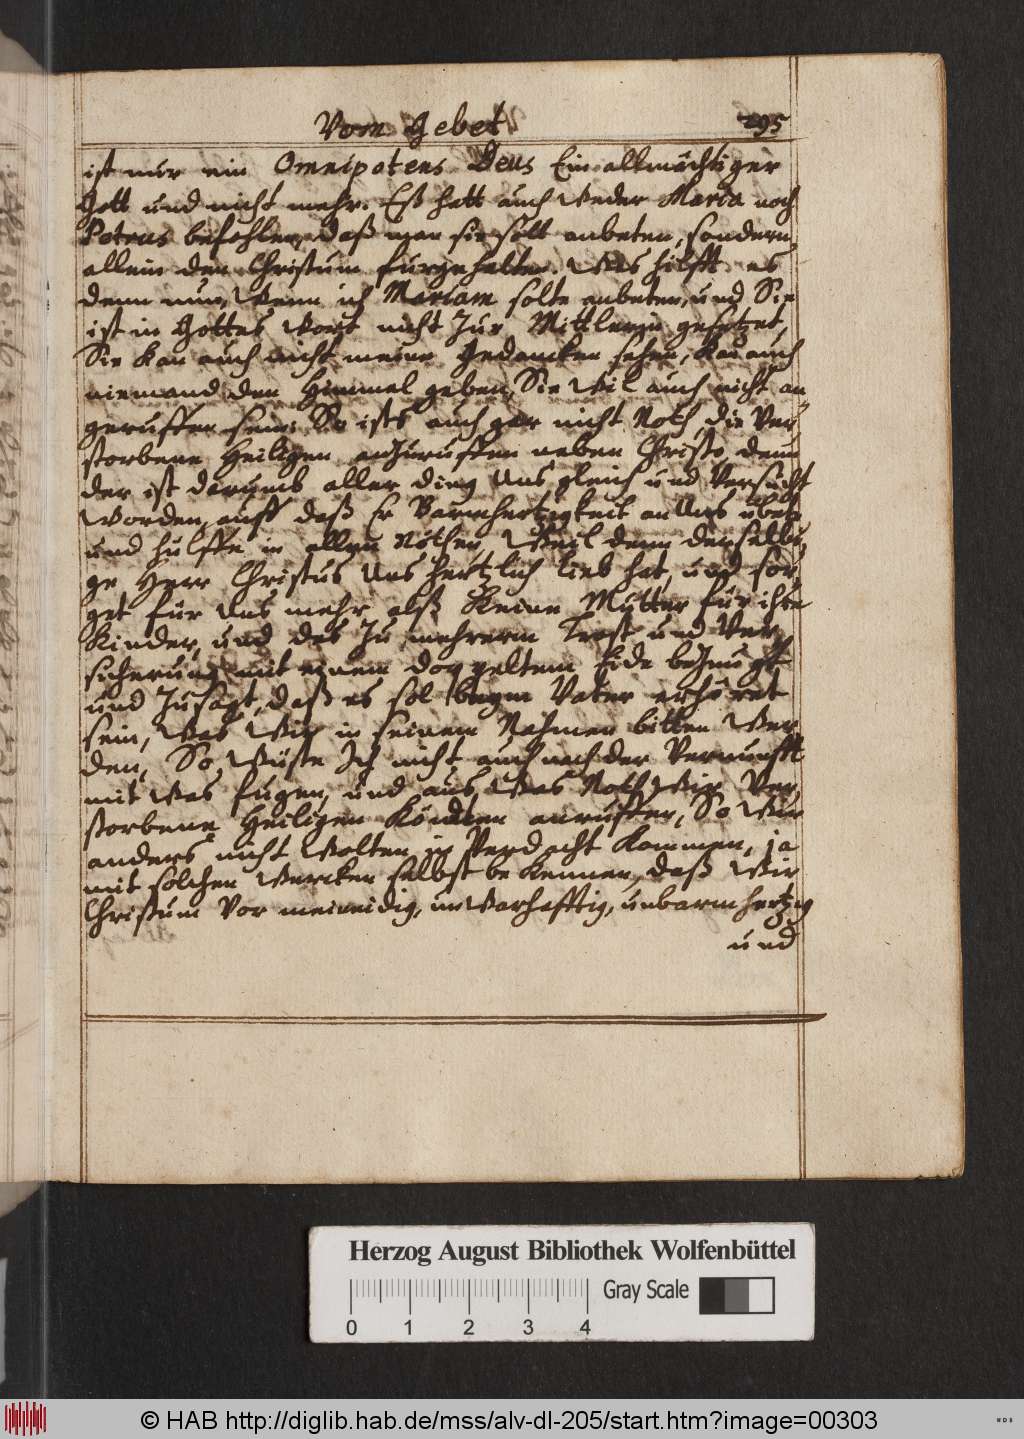 Vom Gebet
295
ist nur ein Omnipotens Deus Ein allmächtiger
Gott und nicht mehr. Eß hatt auch Weder Maria noch
Petrus befohlen, daß man sie solt anbeten, sondern
allein den Christum furgehalten. Was hilfft es
denn nun, Wenn ich Mariam solte anbeten, und Sie
ist in Gottes Wort nicht Zur Mittlerin gesetzet,
Sie kan auch nicht meine Gedancken sehen, kan auch
niemand den Himmel geben, Sie Wil auch nicht an
geruffen sein. So ists auch gar nicht Noth die Ver
storbene Heiligen anZuruffen neben Christo denn
der ist darumb aller ding Uns gleich und Versucht
Worden, auff daß Er Barmhertzigkeit an Uns übete
und hülffe in allen Nöthen, Weil denn derselbi,
ge Herr Christus Uns hertzlich lieb hat, und sor,
get für Uns mehr alß Keine Mutter für ihre
Kinder, und das Zu mehrerm Trost und Ver,
sicherung mit einem doppeltem Eide beZeugt
und Zusagt, daß es sol beym Vater erhöret
sein, Was Wir in seinem Nahmen bitten Wer
den, So Wüste Ich nicht auch nach der Vernunfft
mit Was fugen, und aus Was Noth Wir Ver,
storbene Heiligen Könten anruffen, So Wir
anders nicht Wolten in Verdacht Kommen, ja
mit solchen Wercken selbst bekennen, daß Wir
Christum Vor meineidig, unWarhafftig, unbarmhertzig
und
Herzog August Bibliothek Wolfenbüttel
Gray Scale
0 1 2 3 4
© HAB http://diglib.hab.de/mss/alv-dl-205/start.htm?image=00303